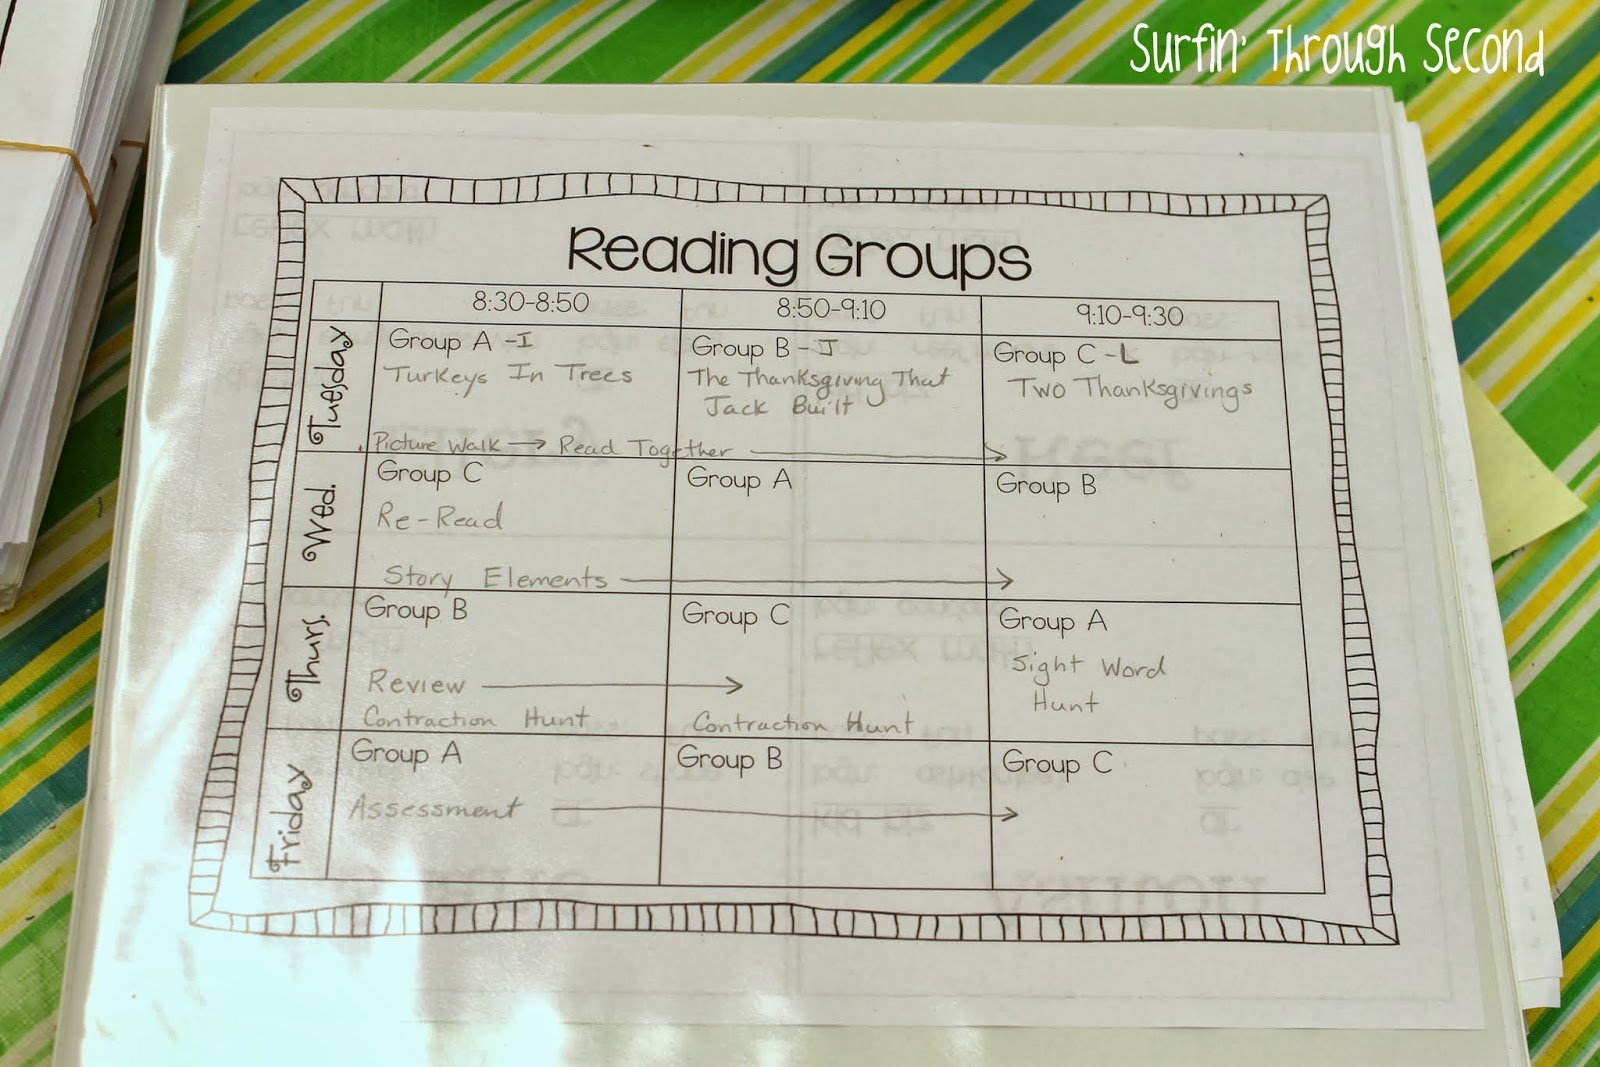 Surfin' Through Second
Reading Groups
8:30-8:50 8:50-9:10 9:10-9:30
Tuesday
Group A -I
Turkeys In Trees
Group B - J
The Thanksgiving That
Jack Built
Group C - L
Two Thanksgivings
Picture Walk → Read Together →
Wed.
Group C
Re-Read
Group A
Group B
Story Elements →
Thurs.
Group B
Group C
Group A
Review →
Contraction Hunt
Contraction Hunt
Sight Word
Hunt
Friday
Group A
Group B
Group C
Assessment →